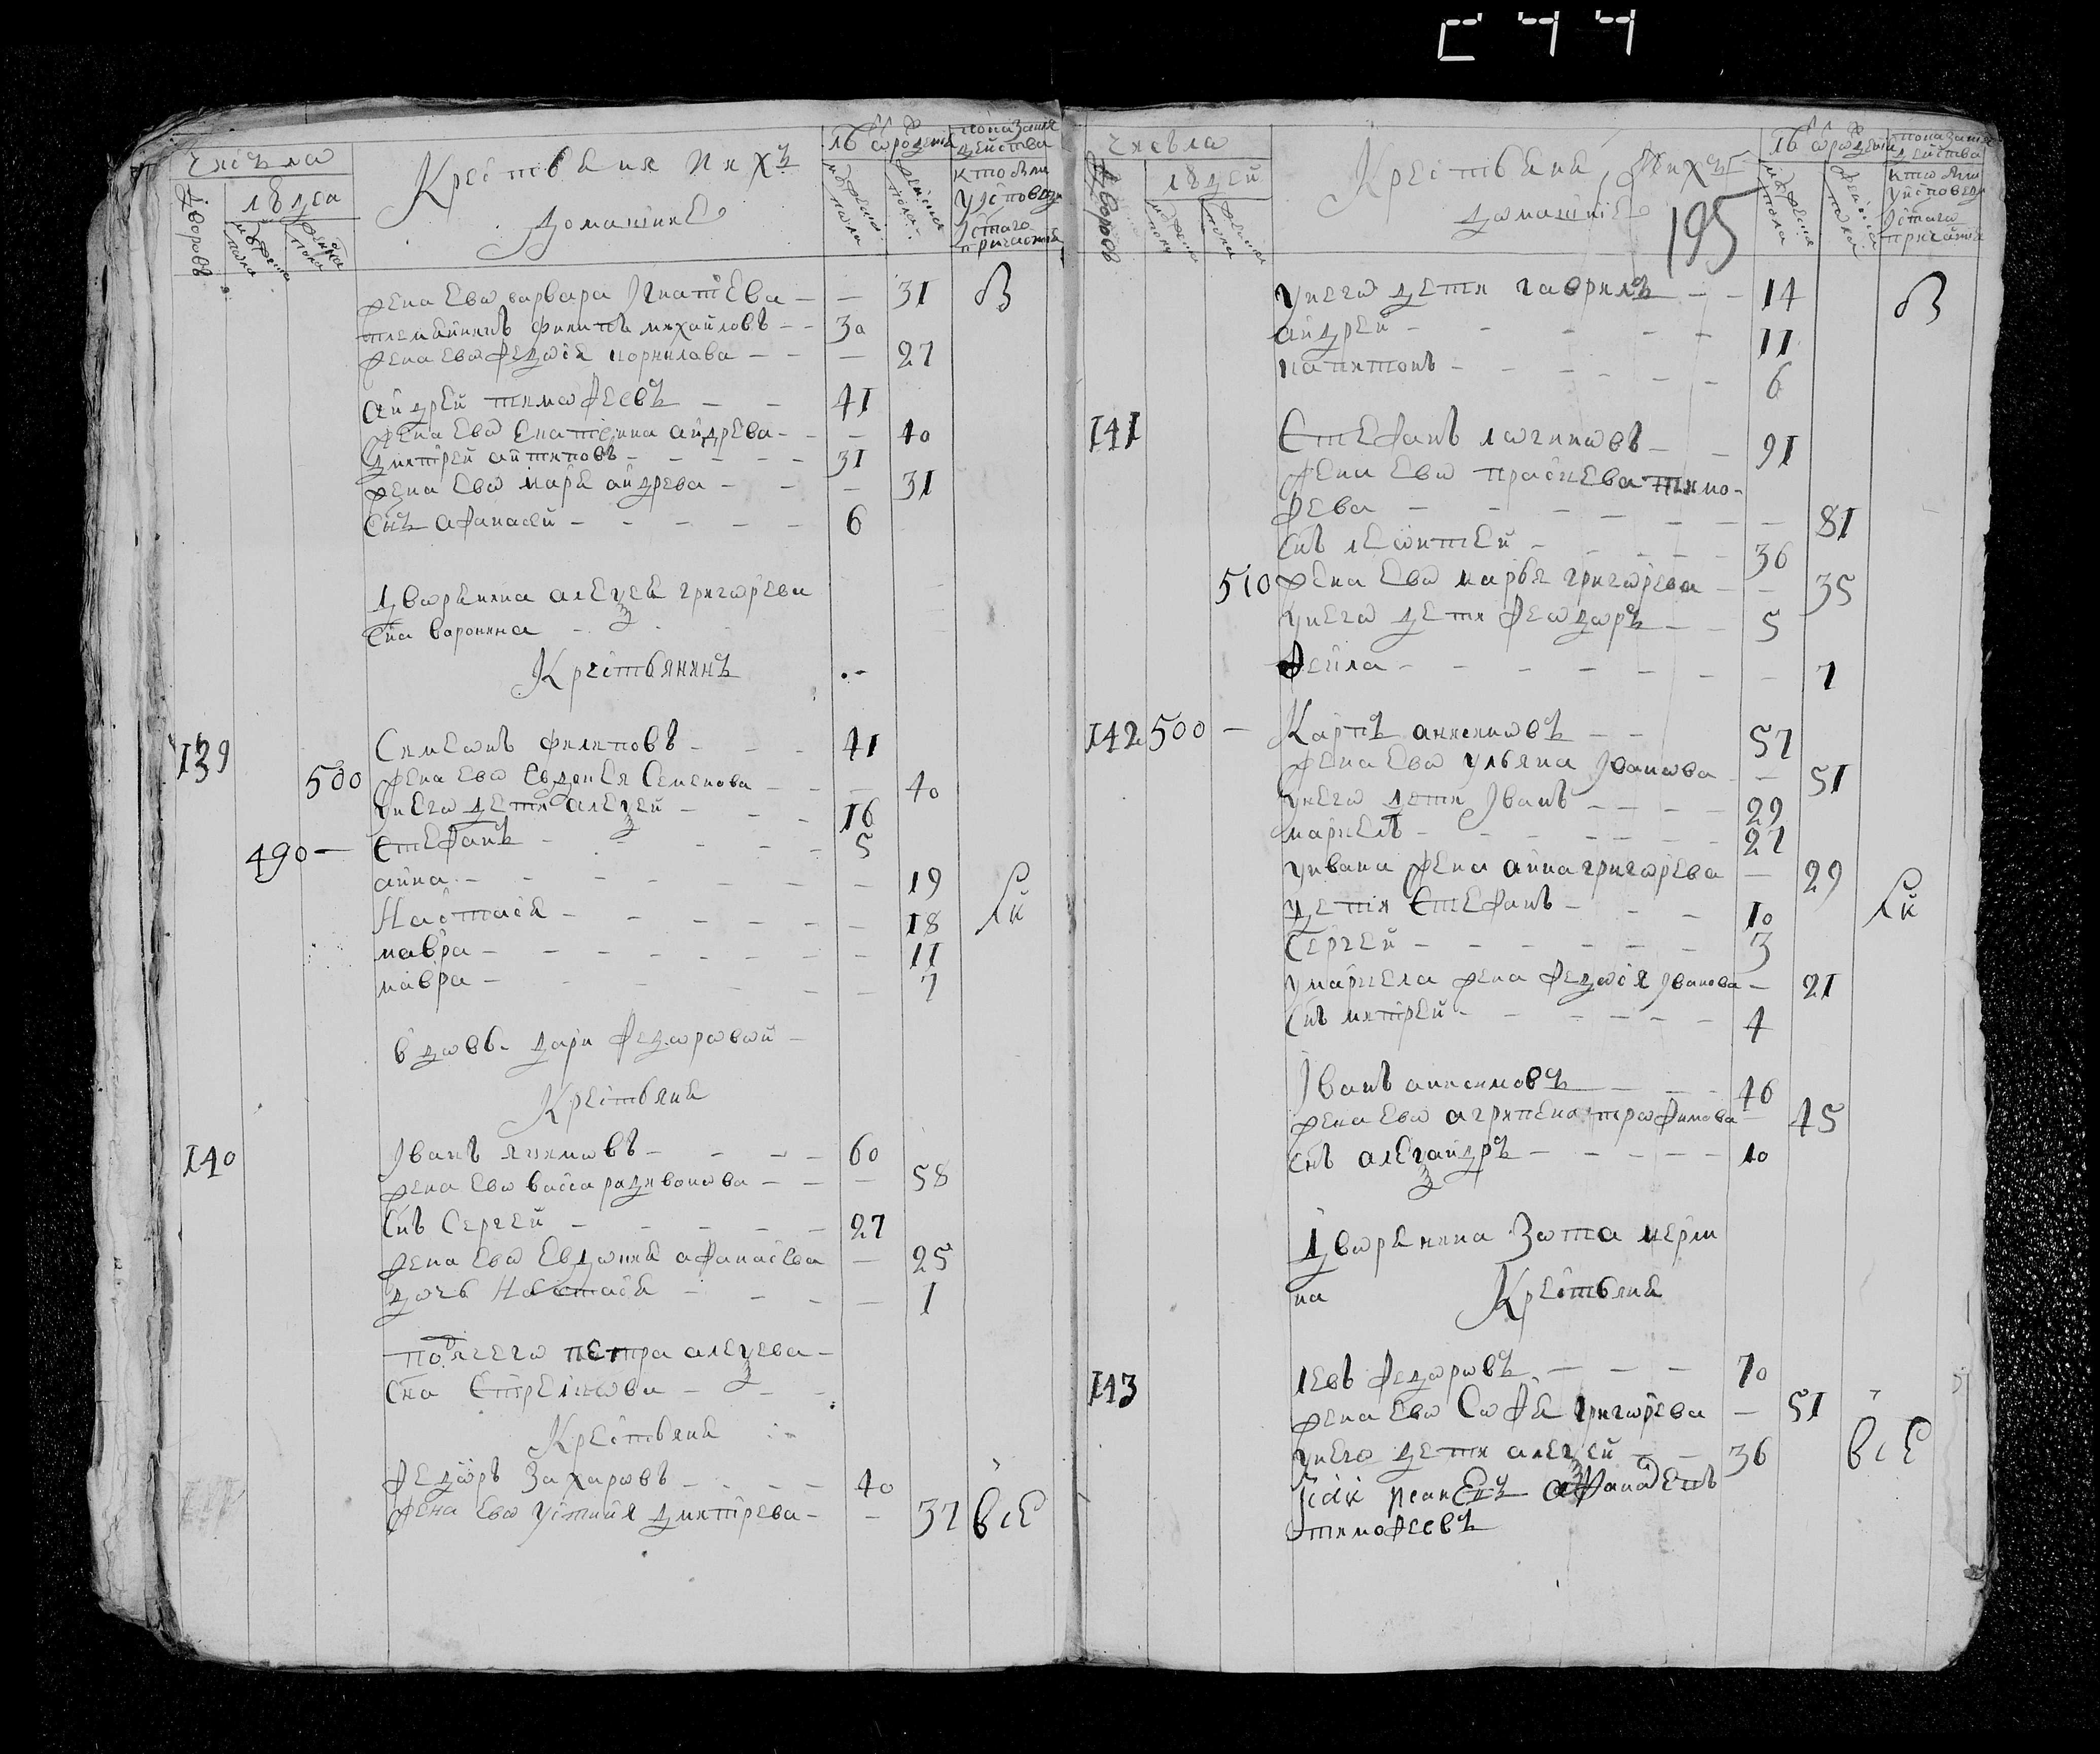 числа
людей
дворовъ
мужеска пола
женска пола
Крестьяня и ихъ
домашние
лѣ от рождения
мужеска пола
женска пола
показания
действа
кто былъ
у исповеди
и святаго
причастия
жена ево варвара Игнатева — — 31
племянникъ филипъ михайловъ — — 30
жена ево федосья корнилова — — — 27
андрей тимофеевъ — — 41
жена ево екатерина андрева — — — 40
дмитрей антиповъ — — — — — 31
жена ево марья андрева — — — 31
снъ афанасей — — — — — 6
дворянина алеѯея григорева
сна воронина
Крестьянинъ
139 Симеонъ филиповъ — — — 41
500 жена ево евдокея Семенова — — — 40
у него дети алеѯей — — — 16
490 — Стефанъ — — — — 5
анна — — — — — — — 19
Настасья — — — — — — 18
мавра — — — — — — — 11
мавра — — — — — 7
вдовы дарьи федоровой —
Крестьяня
140 Иванъ якимовъ — — — — 60
жена ево васса радивонова — — — 58
снъ Сергей — — — — — 27
жена ево евдокия афанасева — 25
дочь Настасья — — — — 1
петра алеѯева —
сна Стрелкова — — —
Крестьяня
федоръ Захаровъ — — — — 40
жена ево устинья дмитрева — — 37 всѣ
числа
людей
дворовъ
мужеска пола
женска пола
Крестьяня, и ихъ
домашние
195
лѣ от рождения
мужеска пола
женска пола
показания
действа
кто былъ
у исповеди
и святаго
причастия
у него дети гаврилъ — — 14
андрей — — — — — 11
капитонъ — — — — — 6
141 Стефанъ логиновъ — — 91
жена ево прасковя тимо-
фева — — — — — — — 81
снъ леонтей — — — — — 36
510 жена ево марья григорева — — 35
у него дети феодоръ — — 5
фекла — — — — — — — 7
142 500 — Карпъ анисимовъ — — 57
жена ево ульяна Иванова — — 51
у него дети Иванъ — — — — 29
маркелъ — — — — — — 27
у ивана жена анна григорева — 29
дети Стефанъ — — — 10
Сергей — — — — — — 3
у маркела жена федосья Иванова — 21
снъ митрей — — — — — 4
Иванъ анисимовъ — — — 46
жена ево агрипена трофимова — 45
снъ алеѯандръ — — — — — 10
дворянина Зота
на Крестьяня
143 левъ федоровъ — — — 70
жена ево Софья григорева — 51
у него дети алеѯей — — 36 всѣ
тимофеевъ